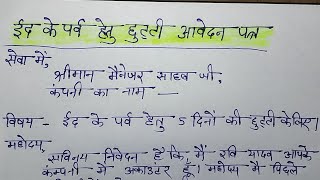 ईद के पर्व हेतु छुट्टी आवेदन पत्र
सेवा में,
श्रीमान मैनेजर साहब जी,
कंपनी का नाम —
विषय - ईद के पर्व हेतु 5 दिनों की छुट्टी के लिए।
महोदय,
सविनय निवेदन है कि मैं रवि यादव आपके
कम्पनी में अकाउंटर हूँ। महोदय मैं पिछले